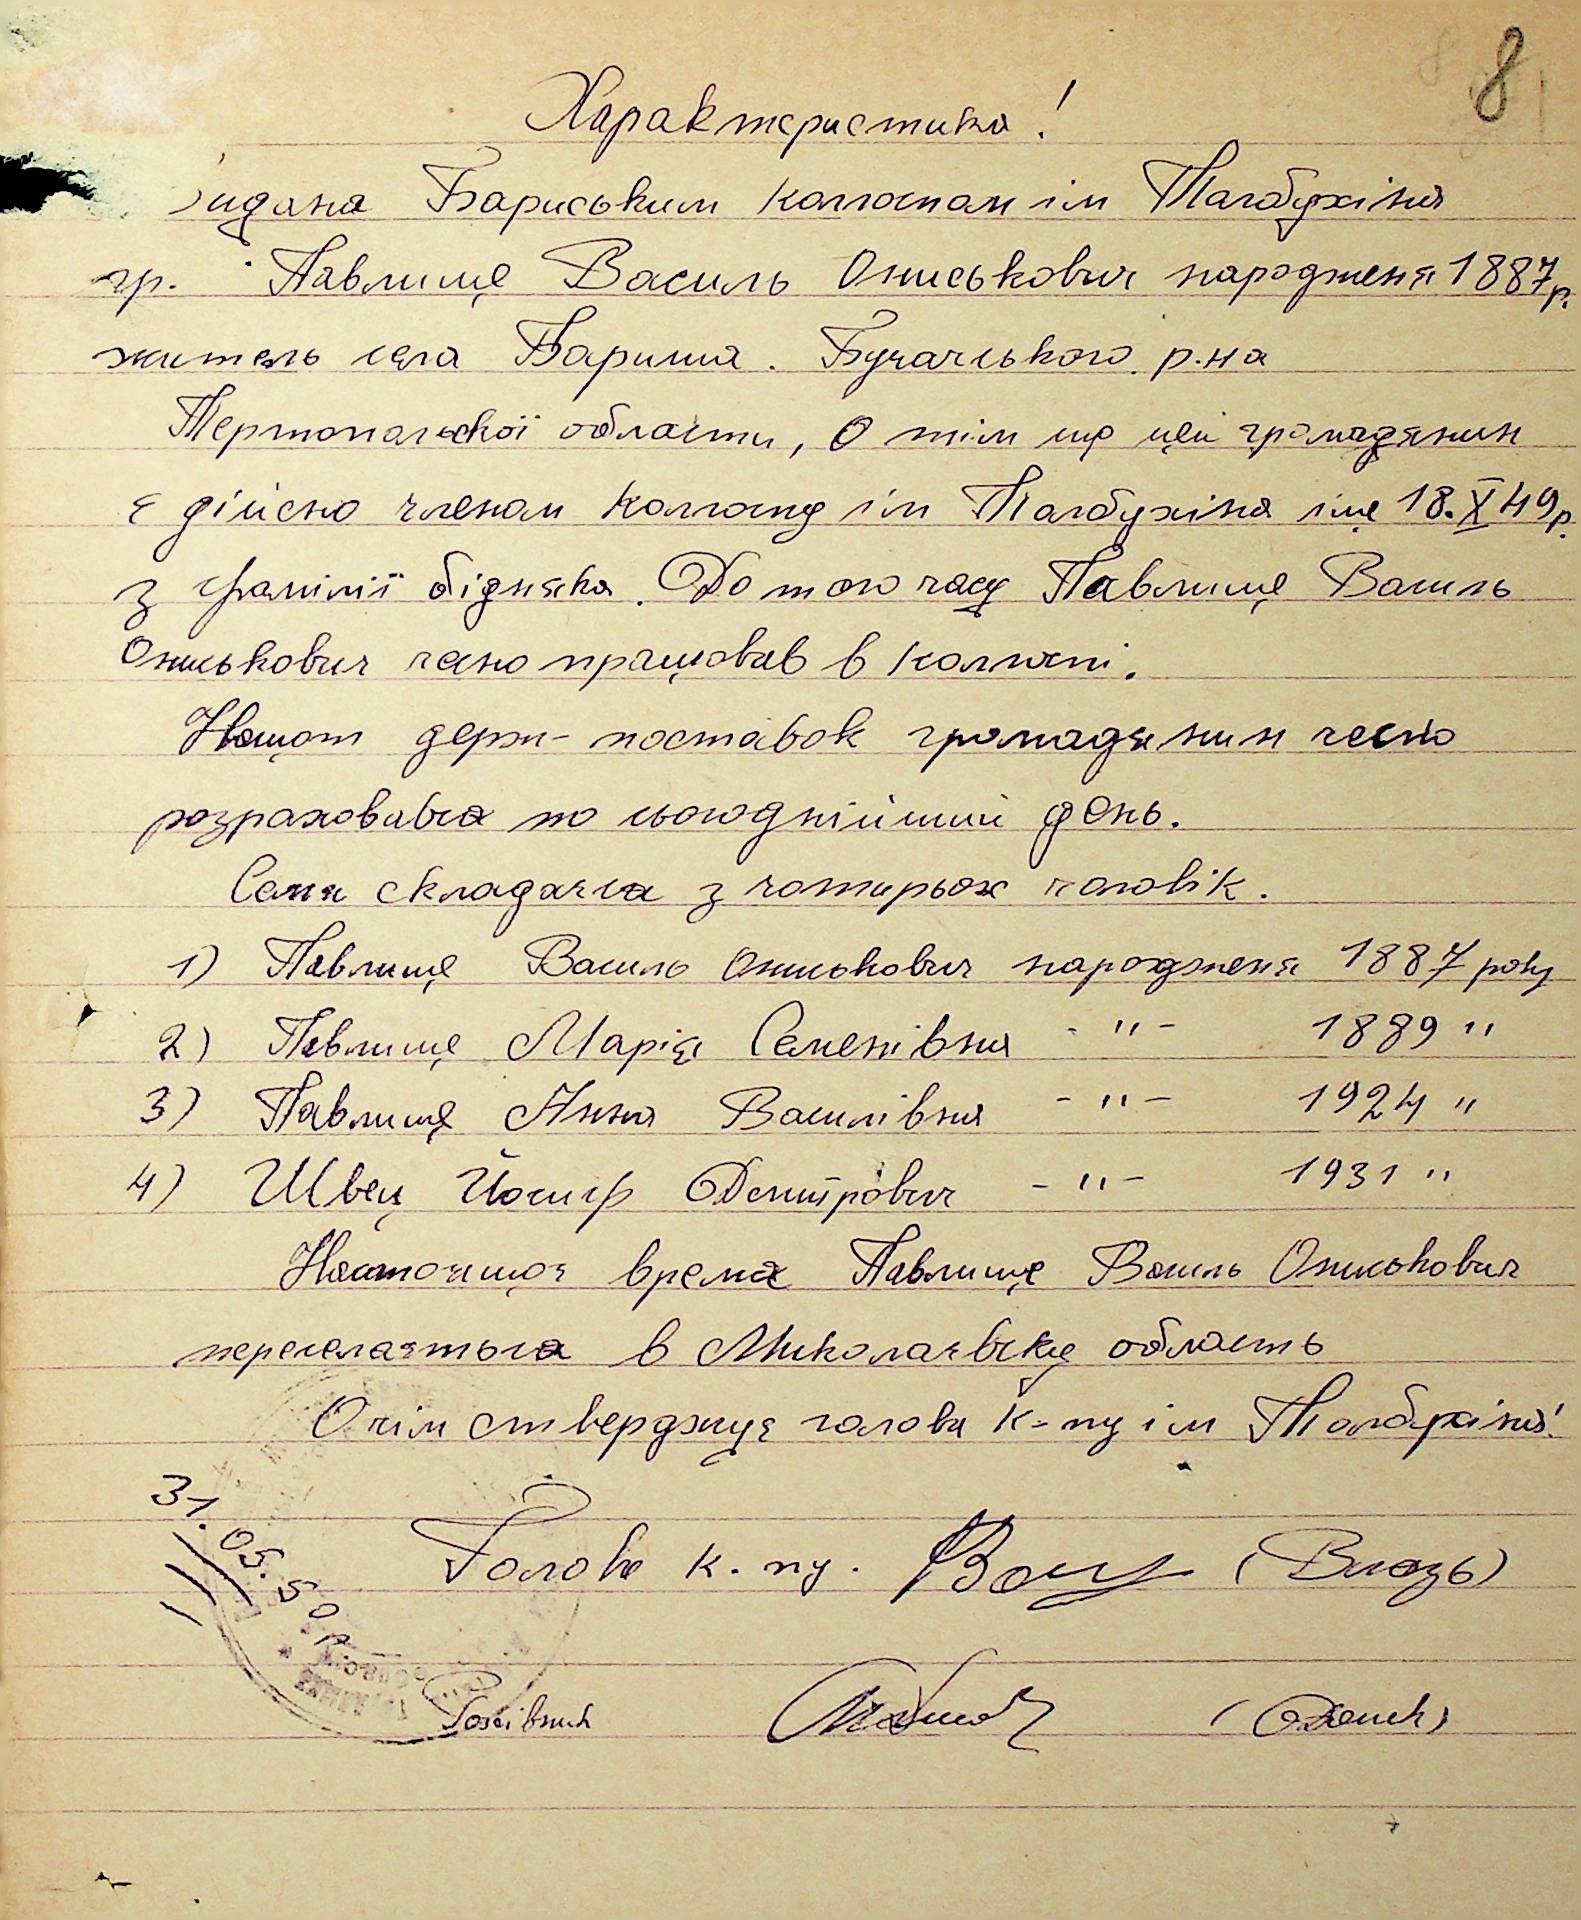 8
Характеристика!
идана Бариським колгоспом ім Толбухіна
гр. Павлище Василь Ониськович народженя 1887 р.
житель села Бариша. Бучачського р-на
Тернопольської области, О тім що цей громадянин
є дійсно членом колгоспу ім Толбухіна іще 18.X 49 р.
з фамілії бідняка. До того часу Павлище Василь
Ониськович чесно працював в колгоспі.
Нащот держ-поставок громадянин чесно
розраховався по сьогоднійший день.
Семя складаєся з чотирьох чоловік.
1) Павлище Василь Ониськович народженя 1887 року
2) Павлище Марія Семенівна -"- 1889 "
3) Павлище Анна Василівна -"- 1924 "
4) Швец Йосиф Дмитрович -"- 1931 "
Настоящоє время Павлище Василь Ониськович
переселяється в Миколаєвську область
О чім стверджує голова к-пу ім Толбухіна!
31.05.50 р
Голова к.пу.